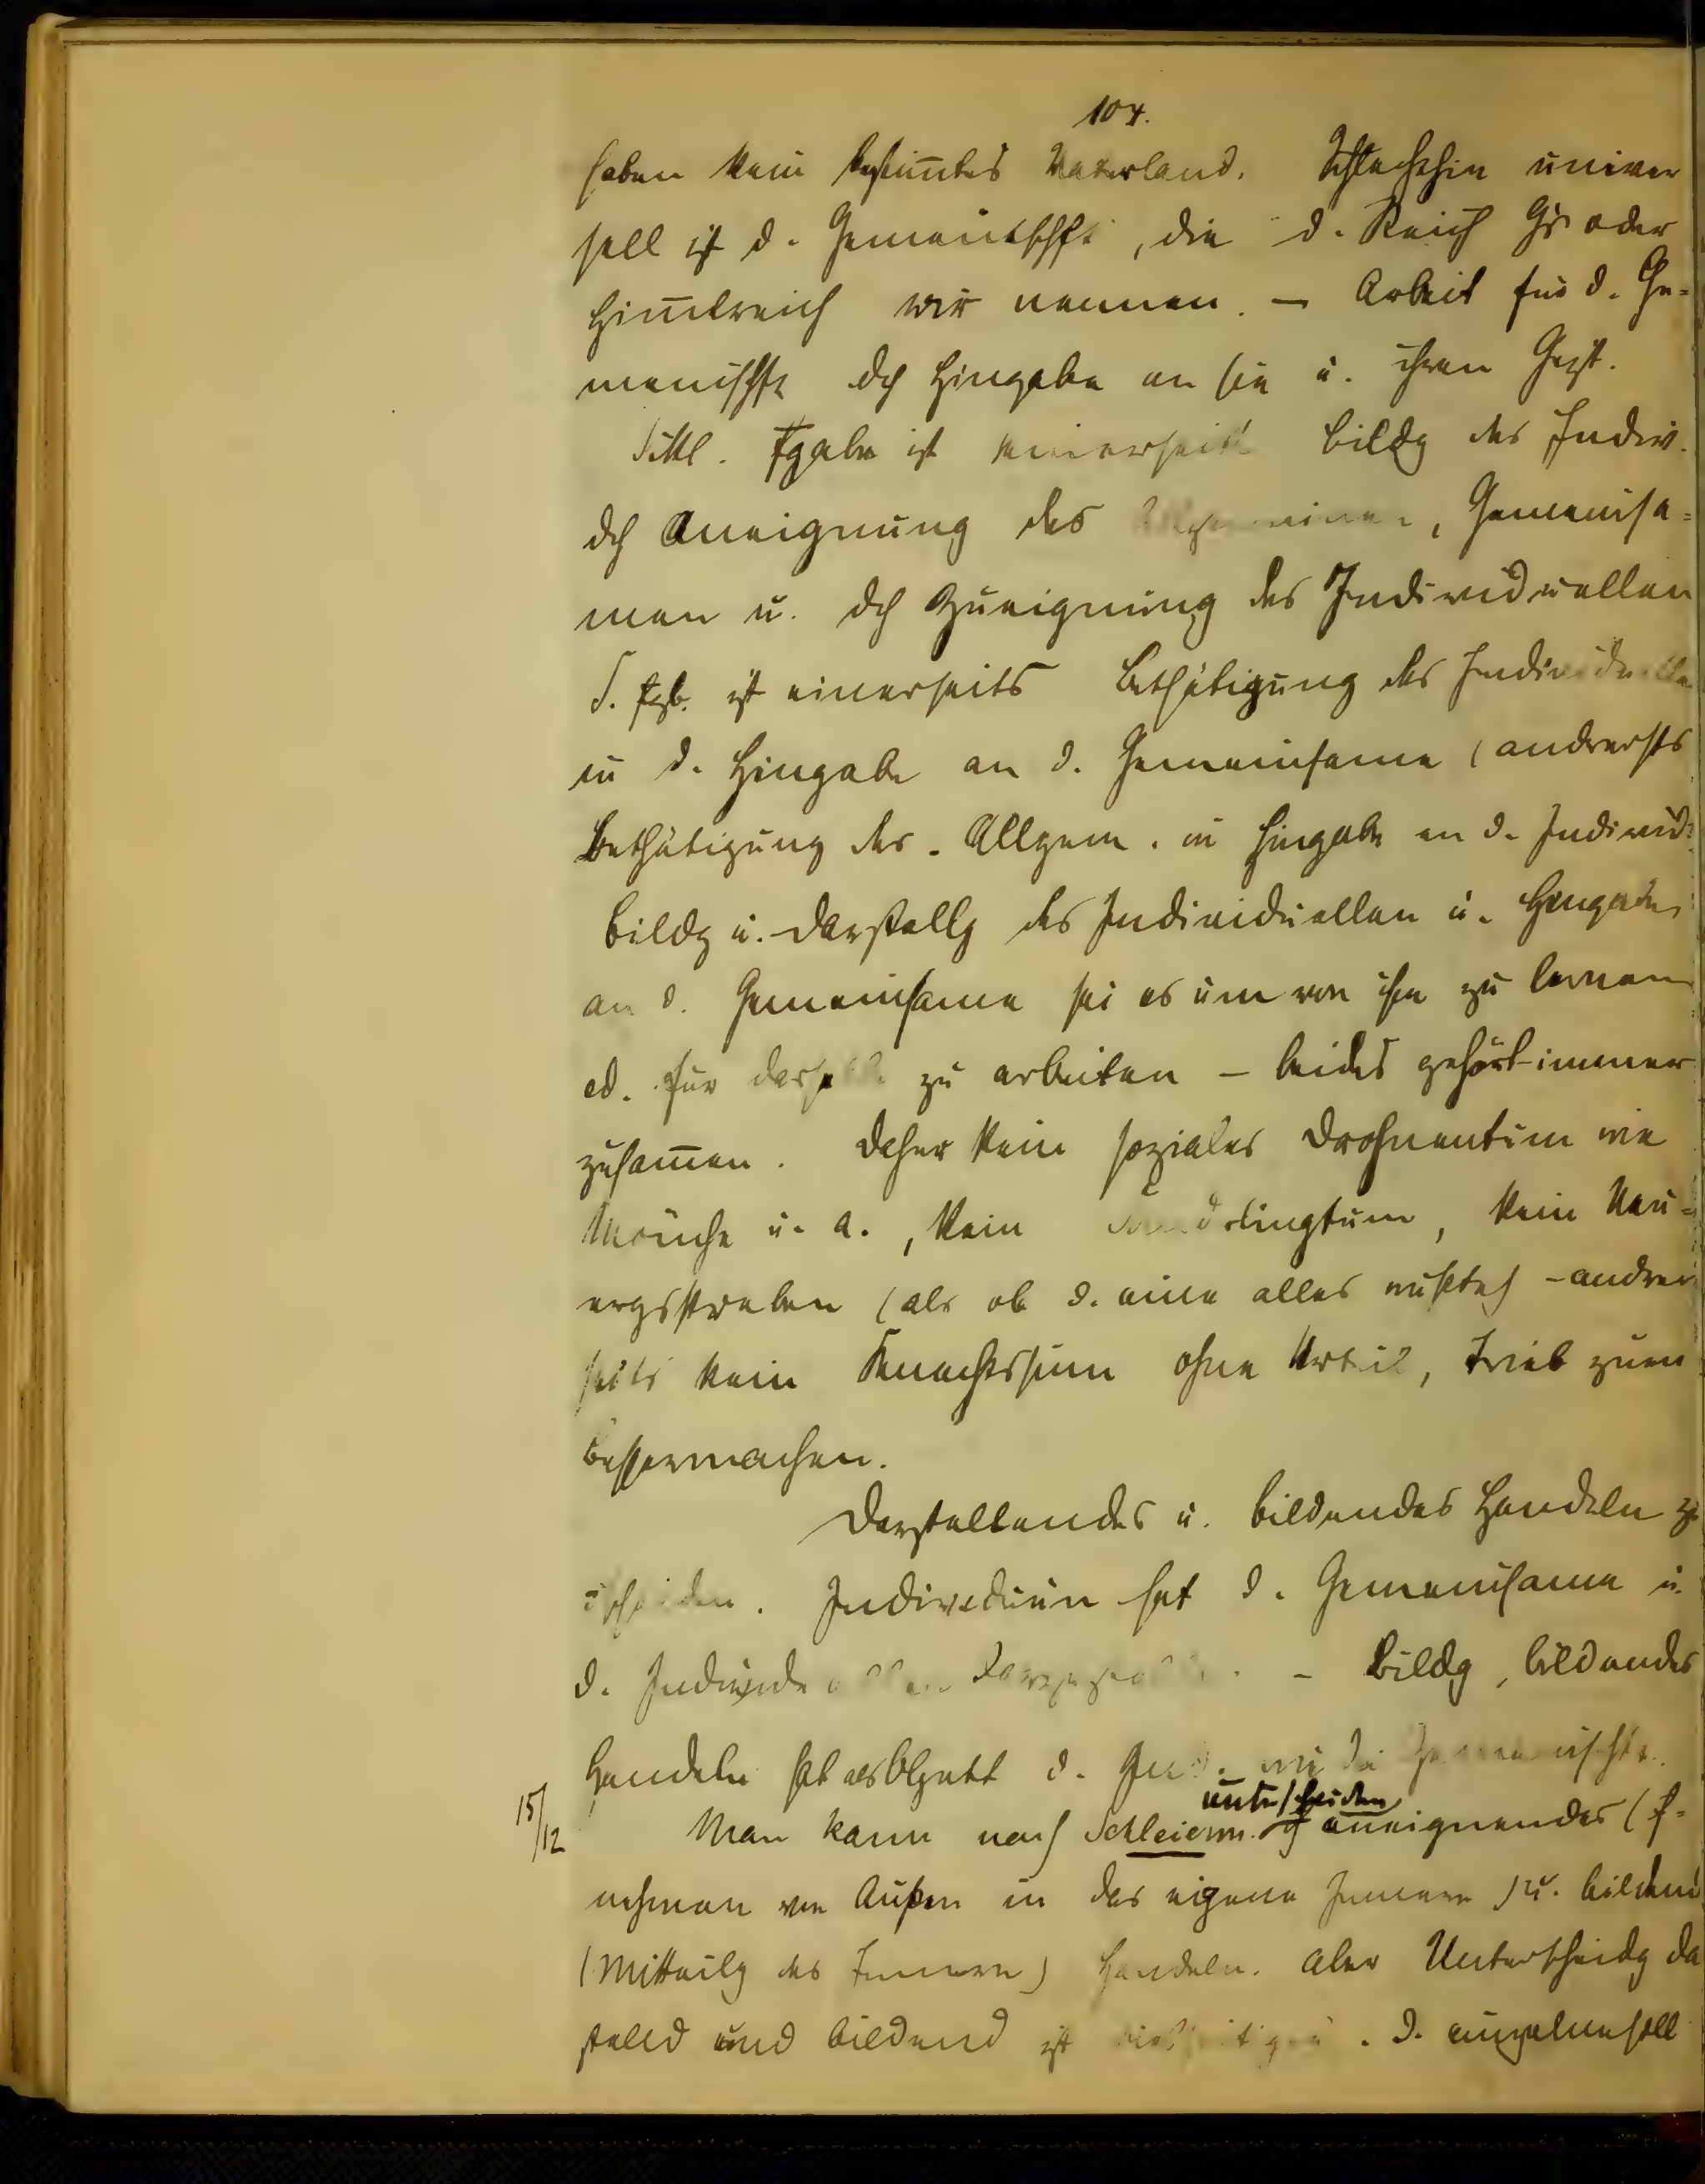 104.
haben kein bestim̄tes Vaterland. Schlechthin univer
sell ist d. Gemeinschft, die d. Reich Gs oder
Him̄elreich wir nennen. – Arbeit für d. Ge-
meinschft dch Hingabe an sie u. ihren Geist.
Sittl. Afgabe ist einerseits Bildg des Indiv.
dch Aneignung des Allgemeinen, Gemeinsa=
men u. dch Zueignung des Individuellen
S. Afgb. ist einerseits Bethätigung des Individuellen
in d. Hingabe an d. Gemeinsame (andrersts
Bethätigung des Allgem. in Hingabe an d. Individ.
Bildg u. Darstellg des Individuellen u. Hingabe
an d. Gemeinsame sei es um von ihm zu lernen
od. für dasselbe zu arbeiten – beides gehört immer
zusam̄en. Daher kein soziales Drohnentum wie
Mönche u. a., kein Sonderlingtum, kein Neu=
ergsstreben (als ob d. eine alles wüßte) – andrer
seits kein Knechtssinn ohne Urteil, Trieb zum
Bessermachen.
Darstellendes u. bildendes Handeln zu
Individuum hat d. Gemeinsame u.
d. Individuellen – Bildg, bildendes
Handeln hat als Objekt d. wie die Gemeinschft.
15/12
unterscheiden
Man kann nach Schleierm. aneignendes (Af=
nehmen von Außen in das eigene Innere) u. bildend
(Mitteilg des Innern) Handeln. Aber Unterscheidg da
stelld und bildend ist . D. einzelne soll